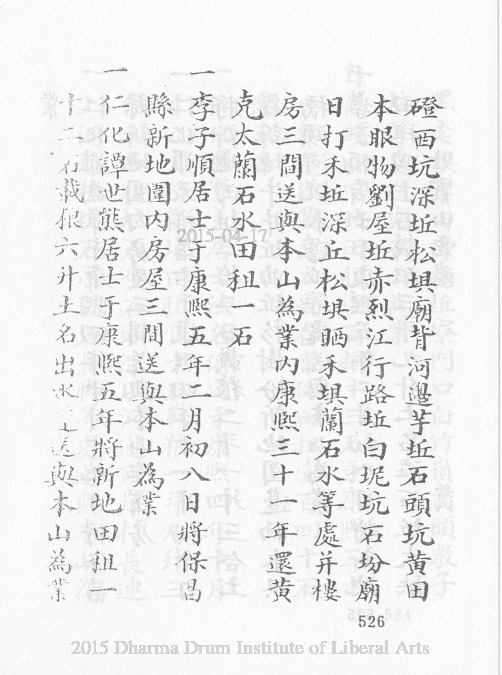 磴西坑深坵松垻廟背河邊芋坵石頭坑黄田
本眼物劉屋坵赤烈江行路坵白坭坑石坋廟
日打禾坵深丘松垻晒禾垻蘭石水等處并樓
房三間送與本山為業内康熈三十一年還黄
克太蘭石水田租一石
一李子順居士于康熈五年二月初八日將保昌
縣新地圍内房屋三間送與本山為業
一仁化譚世熊居士于康熈五年將新地田租一
十二石載粮六升土名出水 送與本山為業
526
2015-04-17
2015 Dharma Drum Institute of Liberal Arts